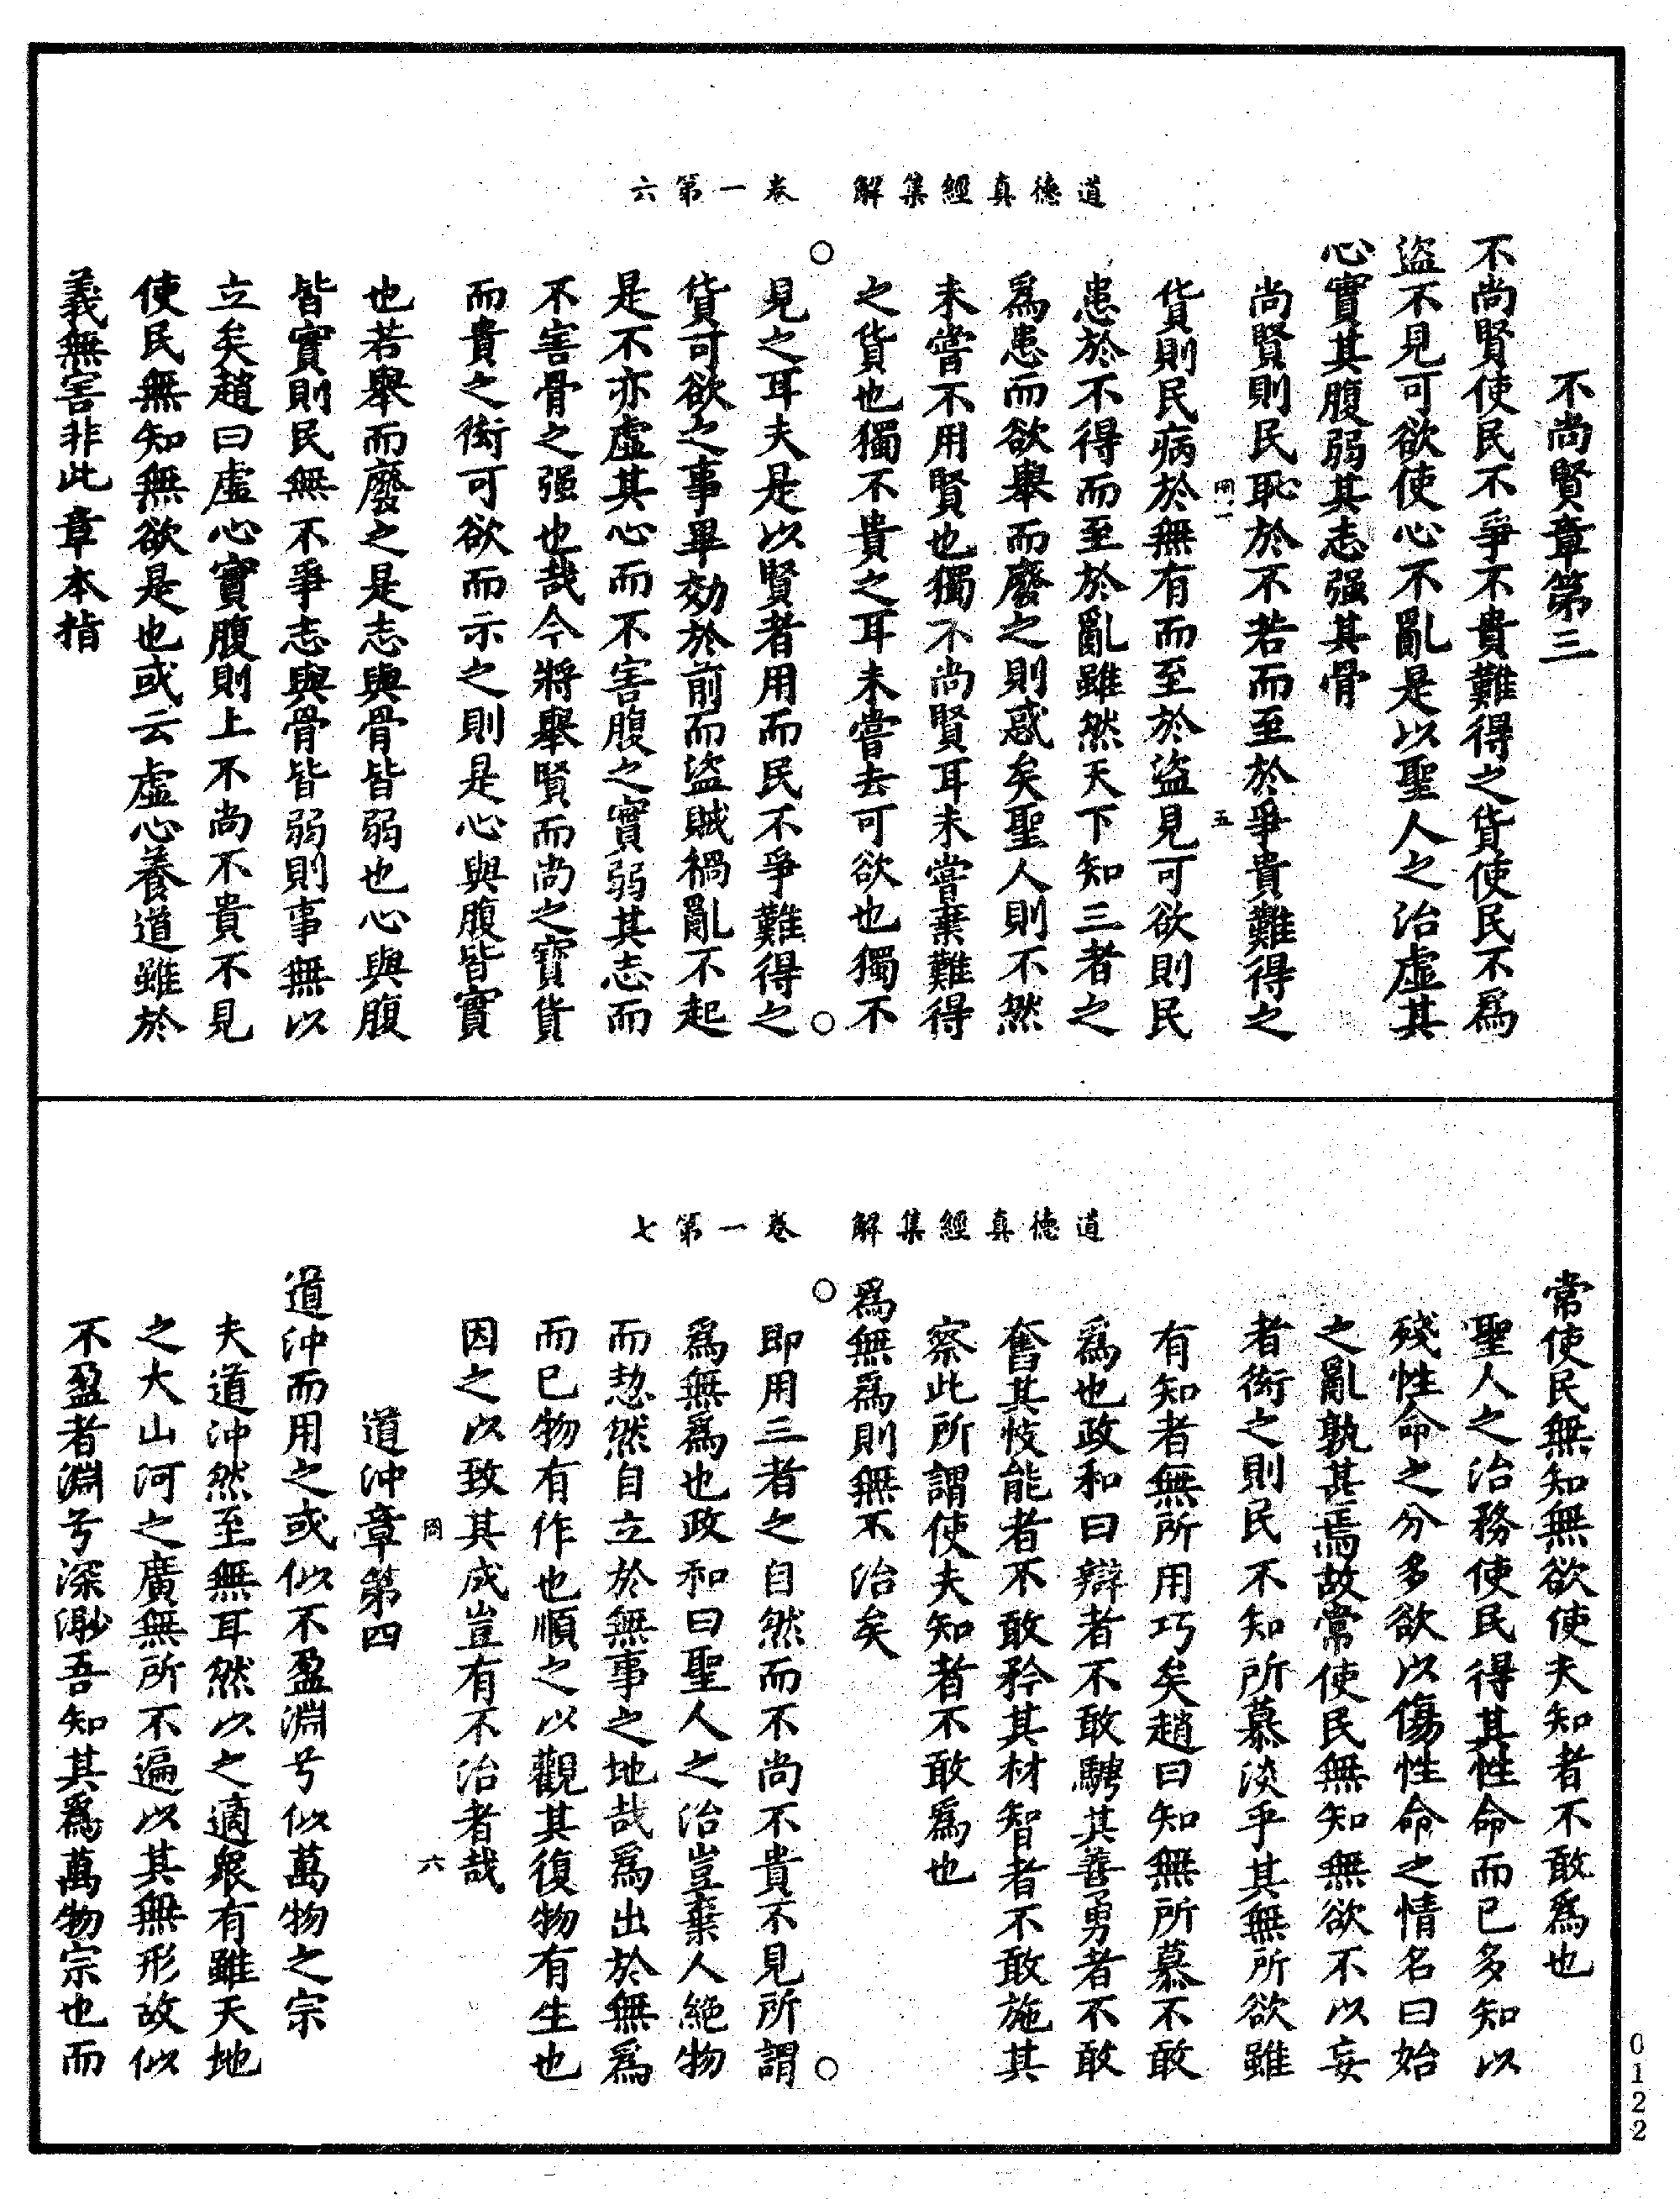 道德真經集解　卷一第六
不尚賢章第三
不尚賢使民不爭不貴難得之貨使民不爲
盜不見可欲使心不亂是以聖人之治虛其
心實其腹弱其志强其骨
尚賢則民恥於不若而至於爭貴難得之
岡一　五
貨則民病於無有而至於盜見可欲則民
患於不得而至於亂雖然天下知三者之
爲患而欲舉而廢之則惑矣聖人則不然
未嘗不用賢也獨不尚賢耳未嘗棄難得
之貨也獨不貴之耳未嘗去可欲也獨不
○　○
見之耳夫是以賢者用而民不爭難得之
貨可欲之事畢効於前而盜賊禍亂不起
是不亦虛其心而不害腹之實弱其志而
不害骨之强也哉今將舉賢而尚之寳貨
而貴之衒可欲而示之則是心與腹皆實
也若舉而廢之是志與骨皆弱也心與腹
皆實則民無不爭志與骨皆弱則事無以
立矣趙曰虛心實腹則上不尚不貴不見
使民無知無欲是也或云虛心養道雖於
義無害非此章本指
道德真經集解　卷一第七
常使民無知無欲使夫知者不敢爲也
聖人之治務使民得其性命而已多知以
殘性命之分多欲以傷性命之情名曰始
之亂孰甚焉故常使民無知無欲不以妄
者衒之則民不知所慕淡乎其無所欲雖
有知者無所用巧矣趙曰知無所慕不敢
爲也政和曰辯者不敢騁其善勇者不敢
奮其忮能者不敢矜其材智者不敢施其
察此所謂使夫知者不敢爲也
爲無爲則無不治矣
○　○
即用三者之自然而不尚不貴不見所謂
爲無爲也政和曰聖人之治豈棄人絶物
而恝然自立於無事之地哉爲出於無爲
而已物有作也順之以觀其復物有生也
因之以致其成豈有不治者哉
岡　六
道沖章第四
道沖而用之或似不盈淵兮似萬物之宗
夫道沖然至無耳然以之適衆有雖天地
之大山河之廣無所不遍以其無形故似
不盈者淵兮深渺吾知其爲萬物宗也而
0122